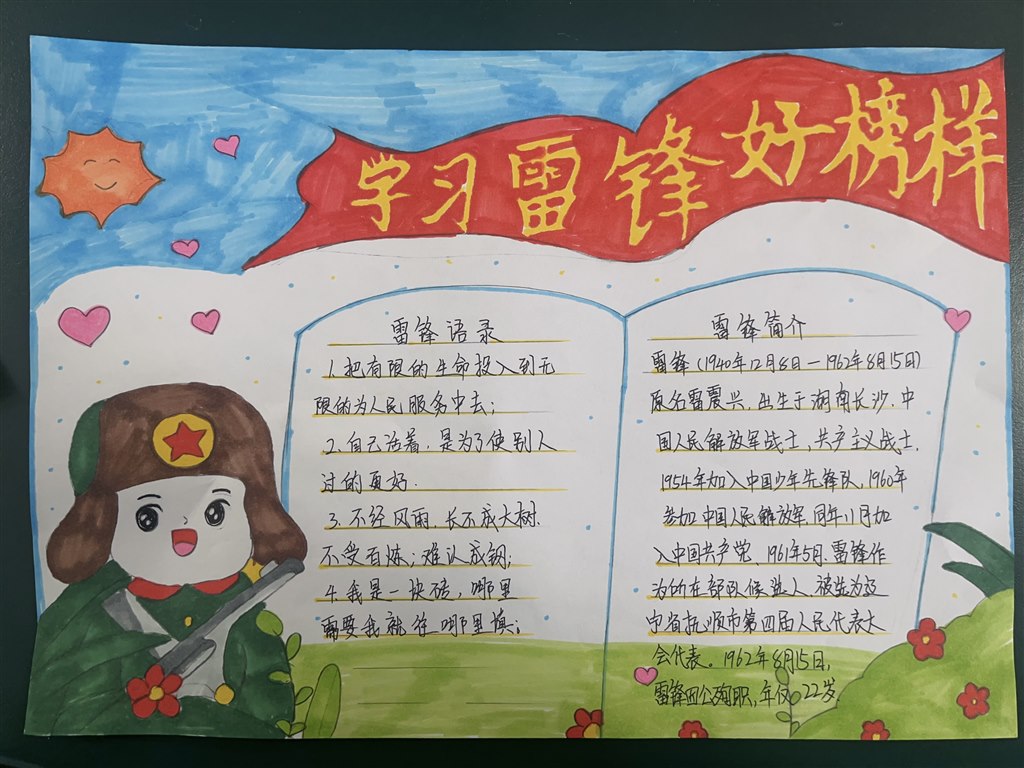 学习雷锋好榜样
雷锋语录
1.把有限的生命投入到无
限的为人民服务中去;
2.自己活着,是为了使别人
过的更好.
3.不经风雨,长不成大树.
不受百炼;难以成钢;
4.我是一块砖,哪里
需要我就往哪里填;
雷锋简介
雷锋(1940年12月18日—1962年8月15日)
原名雷震兴,出生于湖南长沙.中
国人民解放军战士,共产主义战士.
1954年加入中国少年先锋队,1960年
参加中国人民解放军.同年11月加
入中国共产党.1961年5月.雷锋作
为所在部队候选人.被选为辽
宁省抚顺市第四届人民代表大
会代表。1962年8月15日,
雷锋因公殉职,年仅22岁